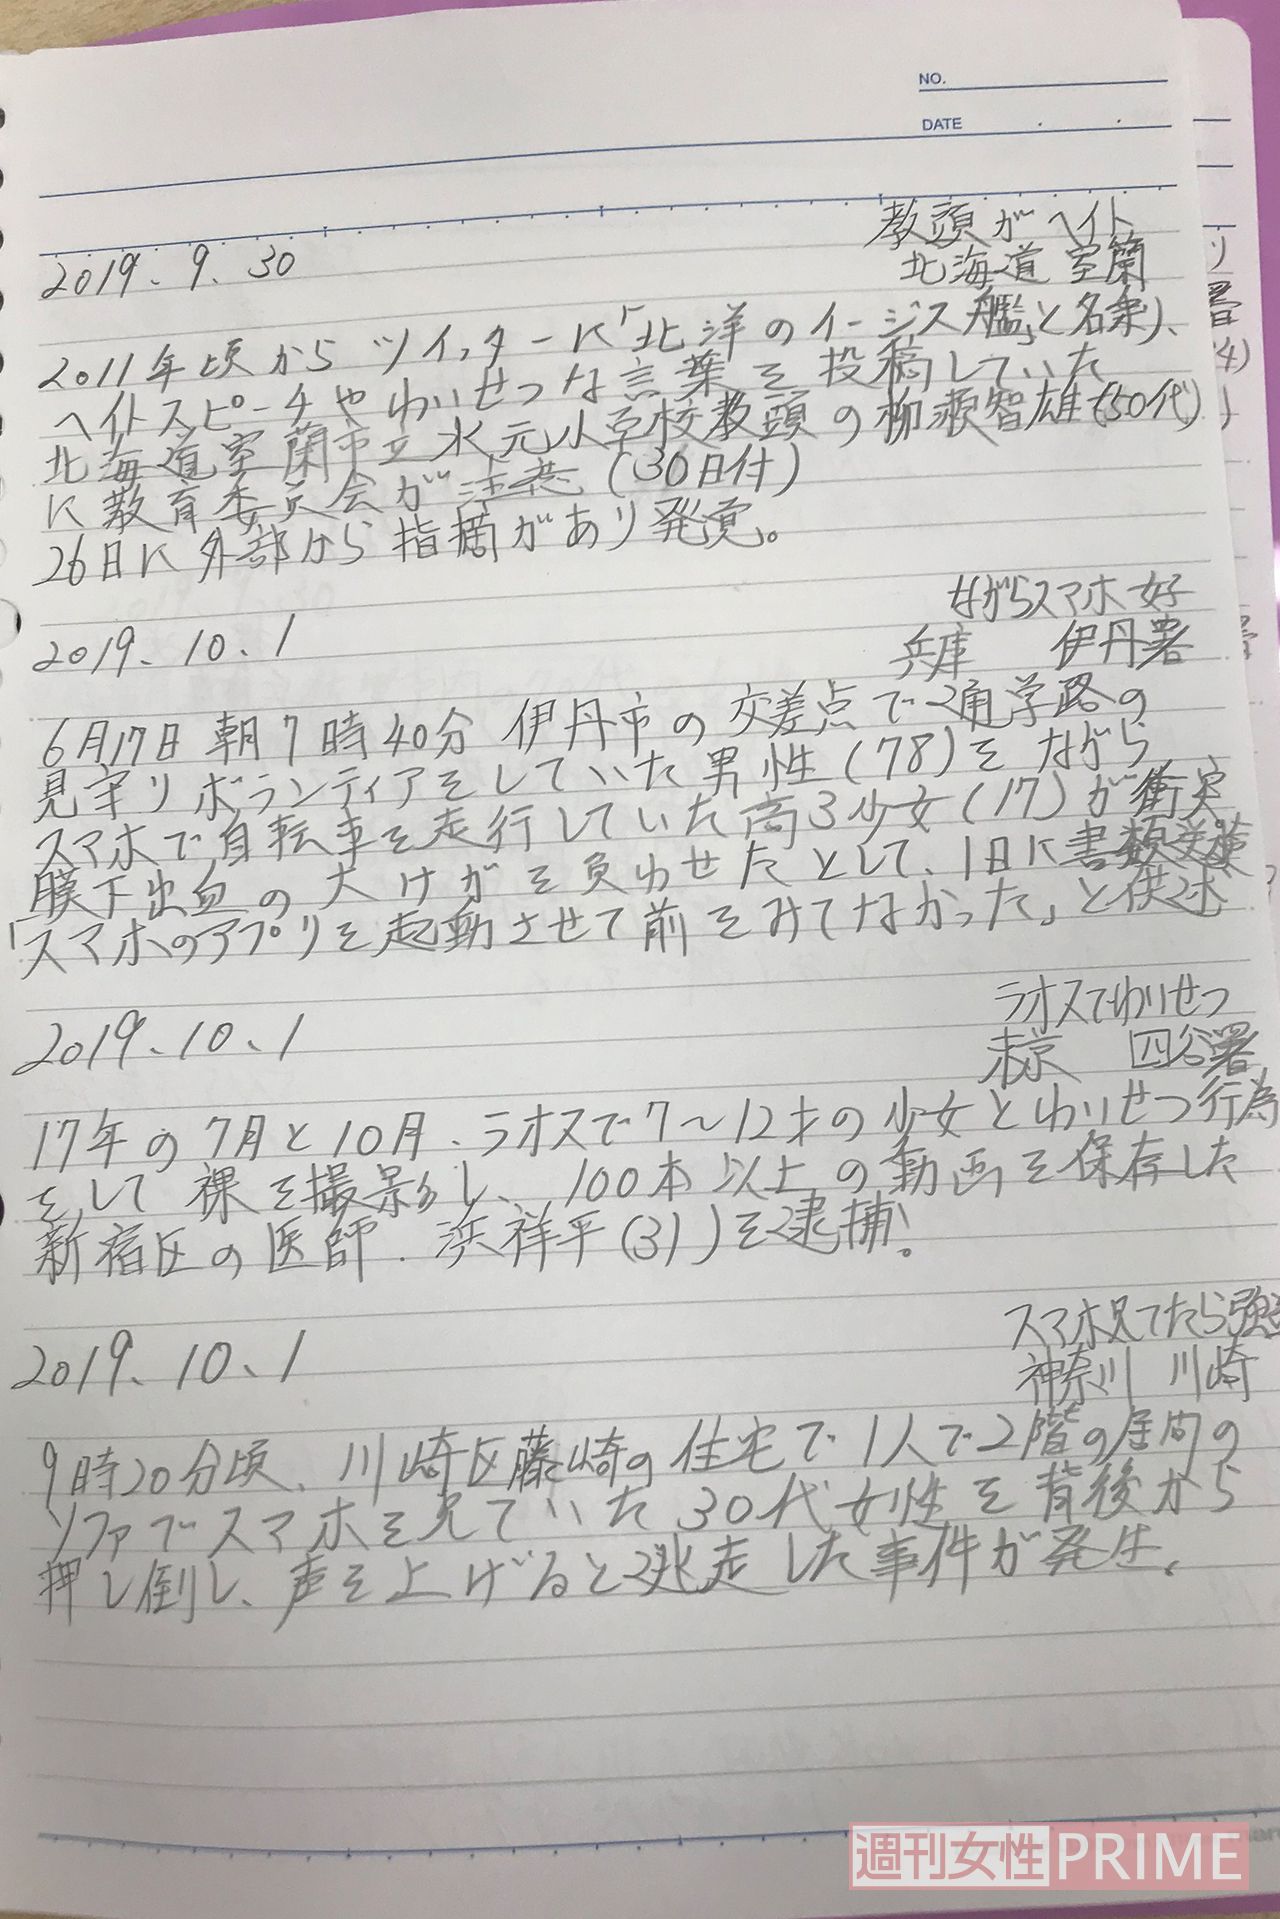 NO.
DATE
教頭がヘイト
2019.9.30
北海道 室蘭
2011年頃から ツイッターに「北洋のイージス艦」と名乗り、
ヘイトスピーチやわいせつな言葉を投稿していた
北海道室蘭市立水元小学校教頭の柳瀬智雄(50代)
に教育委員会が注意(30日付)
26日に外部から指摘があり発覚。
ながらスマホ女子
2019.10.1
兵庫 伊丹署
6月17日朝7時40分 伊丹市の交差点で通学路の
見守りボランティアをしていた男性(78)をながら
スマホで自転車を走行していた高3少女(17)が衝突
膜下出血の大けがを負わせたとして、1日に書類送検
「スマホのアプリを起動させて前をみてなかった」と供述
ラオスでわいせつ
2019.10.1
東京 四谷署
17年の7月と10月、ラオスで7〜12才の少女とわいせつ行為
をして裸を撮影し、100本以上の動画を保存した
新宿区の医師.浜祥平(31)を逮捕!
スマホ見てたら強
2019.10.1
神奈川 川崎
9時20分頃、川崎区藤崎の住宅で1人で2階の居間の
ソファでスマホを見ていた30代女性を背後から
押し倒し、声を上げると逃走した事件が発生。
週刊女性PRIME